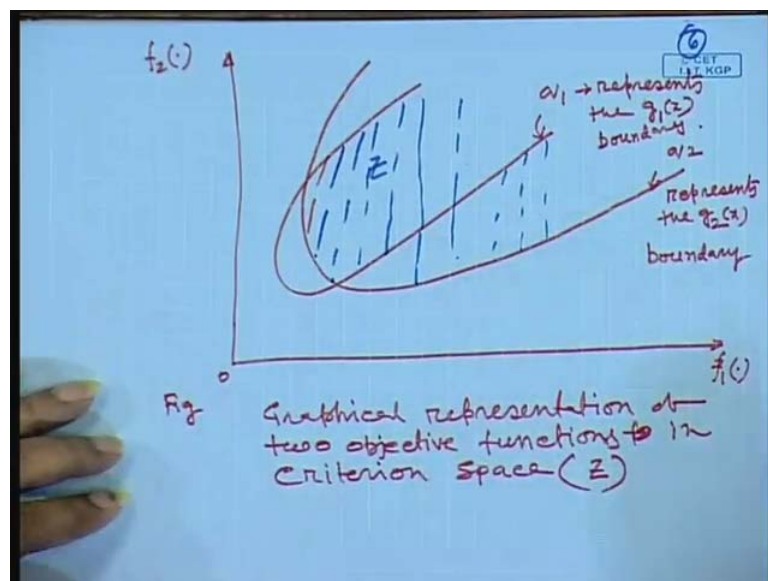 f₂(·)
6
C CET
I.I.T. KGP
a/1 → represents
the g₁(x)
boundary.
a/2
represents
the g₂(x)
boundary
Z
0
f₁(·)
Fig
Graphical representation of
two objective functions in
Criterion Space (Z)